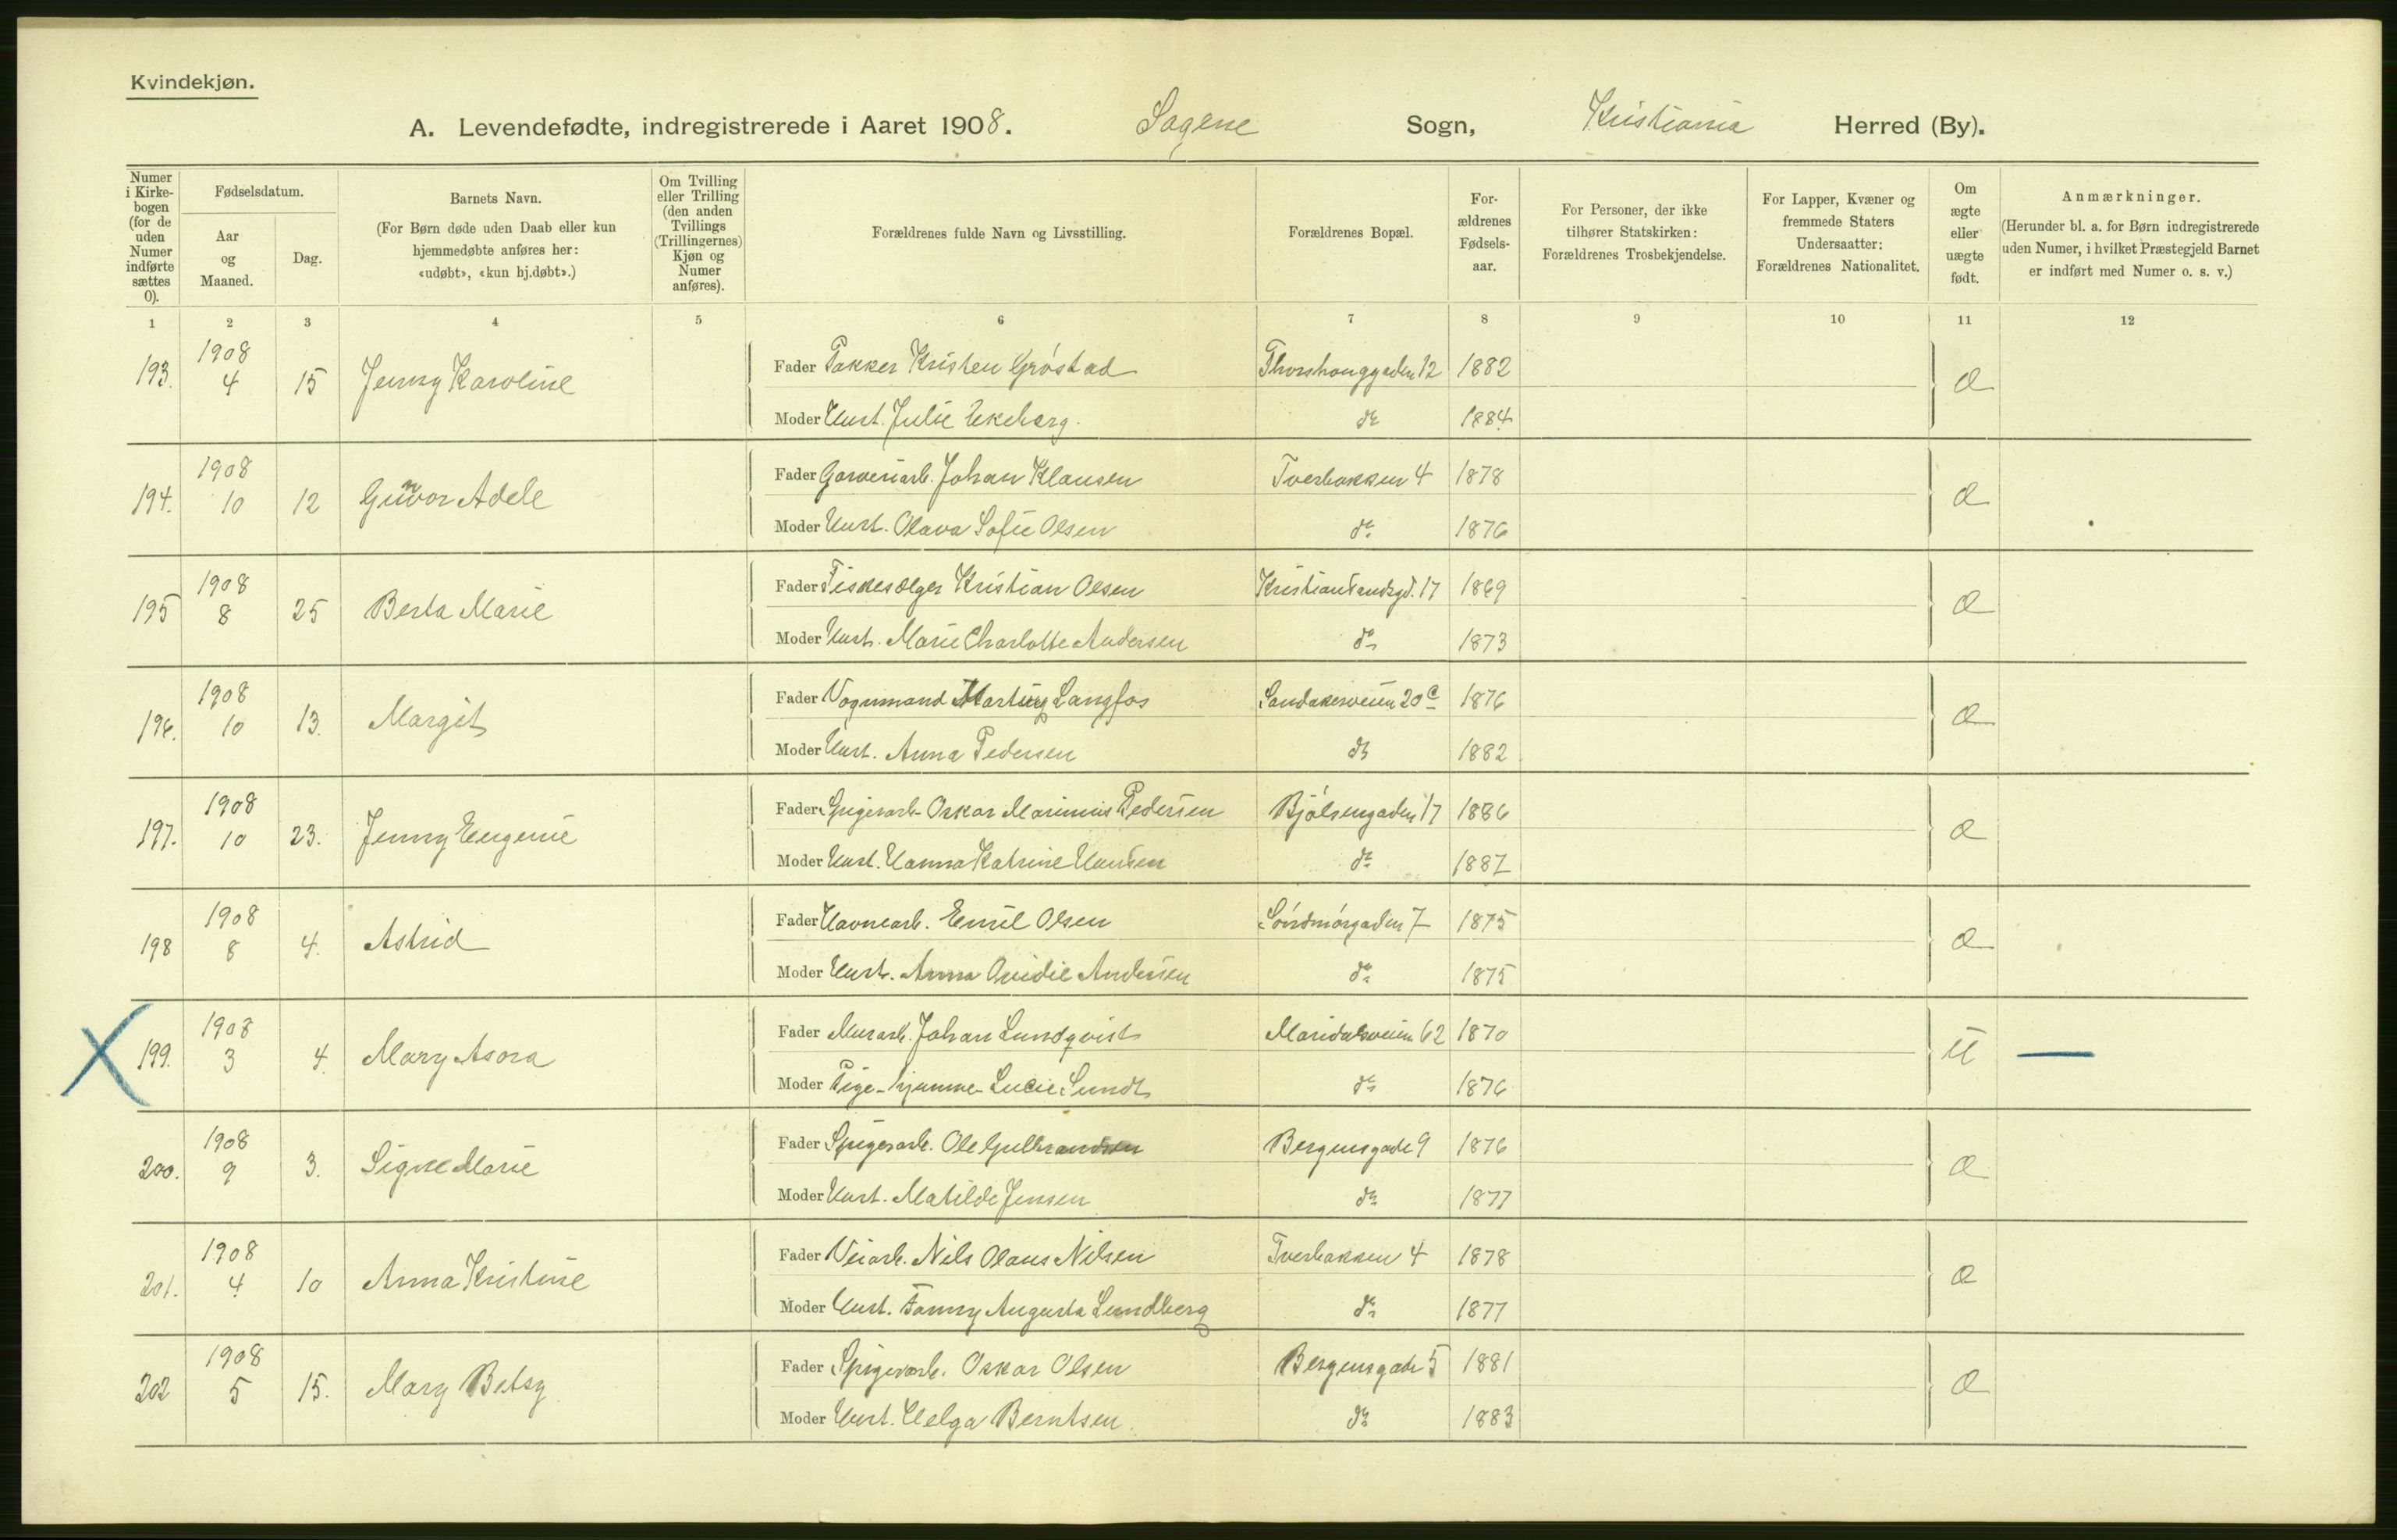 Kvindekjøn.
A. Levendefødte, indregistrerede i Aaret 1908. Sagene Sogn, Kristiania Herred (By).
Numer i Kirkebogen (for de uden Numer indførte sættes 0).
Fødselsdatum.
Aar og Maaned.
Dag.
Barnets Navn.
(For Børn døde uden Daab eller kun hjemmedøbte anføres her: «udøbt», «kun hj.døbt».)
Om Tvilling eller Trilling (den anden Tvillings (Trillingernes) Kjøn og Numer anføres).
Forældrenes fulde Navn og Livsstilling.
Forældrenes Bopæl.
Forældrenes Fødselsaar.
For Personer, der ikke tilhører Statskirken: Forældrenes Trosbekjendelse.
For Lapper, Kvæner og fremmede Staters Undersaatter: Forældrenes Nationalitet.
Om ægte eller uægte født.
Anmærkninger.
(Herunder bl. a. for Børn indregistrerede uden Numer, i hvilket Præstegjeld Barnet er indført med Numer o. s. v.)
1 2 3 4 5 6 7 8 9 10 11 12
193. 1908 4 15 Jenny Karoline
Fader Pakker Kristen Grøstad Thorshauggaden 12 1882 Æ
Moder Hust. Julie Ekeberg. do 1884
194. 1908 10 12 Gunvor Adele
Fader Garveriarb. Johan Klausen Tverbakken 4 1878 Æ
Moder Hust. Olava Sofie Olsen do 1876
195 1908 8 25 Berta Marie
Fader Fiskesælger Kristian Olsen Kristiansandsgd. 17 1869 Æ
Moder Hust. Marie Charlotte Andersen do 1873
196. 1908 10 13. Margit
Fader Vognmand Langfos Sandakerveien 20 c 1876 Æ
Moder Hust. Anna Pedersen do 1882
197. 1908 10 23. Jenny Eugenie
Fader Spigerarb. Oskar Marinius Pedersen Bjølsengaden 17 1886 Æ
Moder Hust. Hanna Katrine Hansen do 1887
198 1908 8 4. Astrid
Fader Havnearb. Emil Olsen Söndmörgaden 7 1875 Æ
Moder Hust. Anna Ovidie Andersen do 1875
199. 1908 3 4. Mary Asora
Fader Murarb. Johan Lundqvist Maridalsveien 62 1870 U —
Moder Pige - hjemme - Lucie Sundt do 1876
200. 1908 9 3. Signe Marie
Fader Spigerarb. Ole Gulbrandsen Bergensgade 9 1876 Æ
Moder Hust. Matilde Jensen do 1877
201. 1908 4 10 Anna Kristine
Fader Veiarb. Nils Olaus Nilsen Tverbakken 4 1878 Æ
Moder Hust. Fanny Augusta Lundberg do 1877
202 1908 5 15. Mary Betsy
Fader Spigerarb. Oskar Olsen Bergensgade 5 1881 Æ
Moder Hust. Helga Berntsen. do 1883